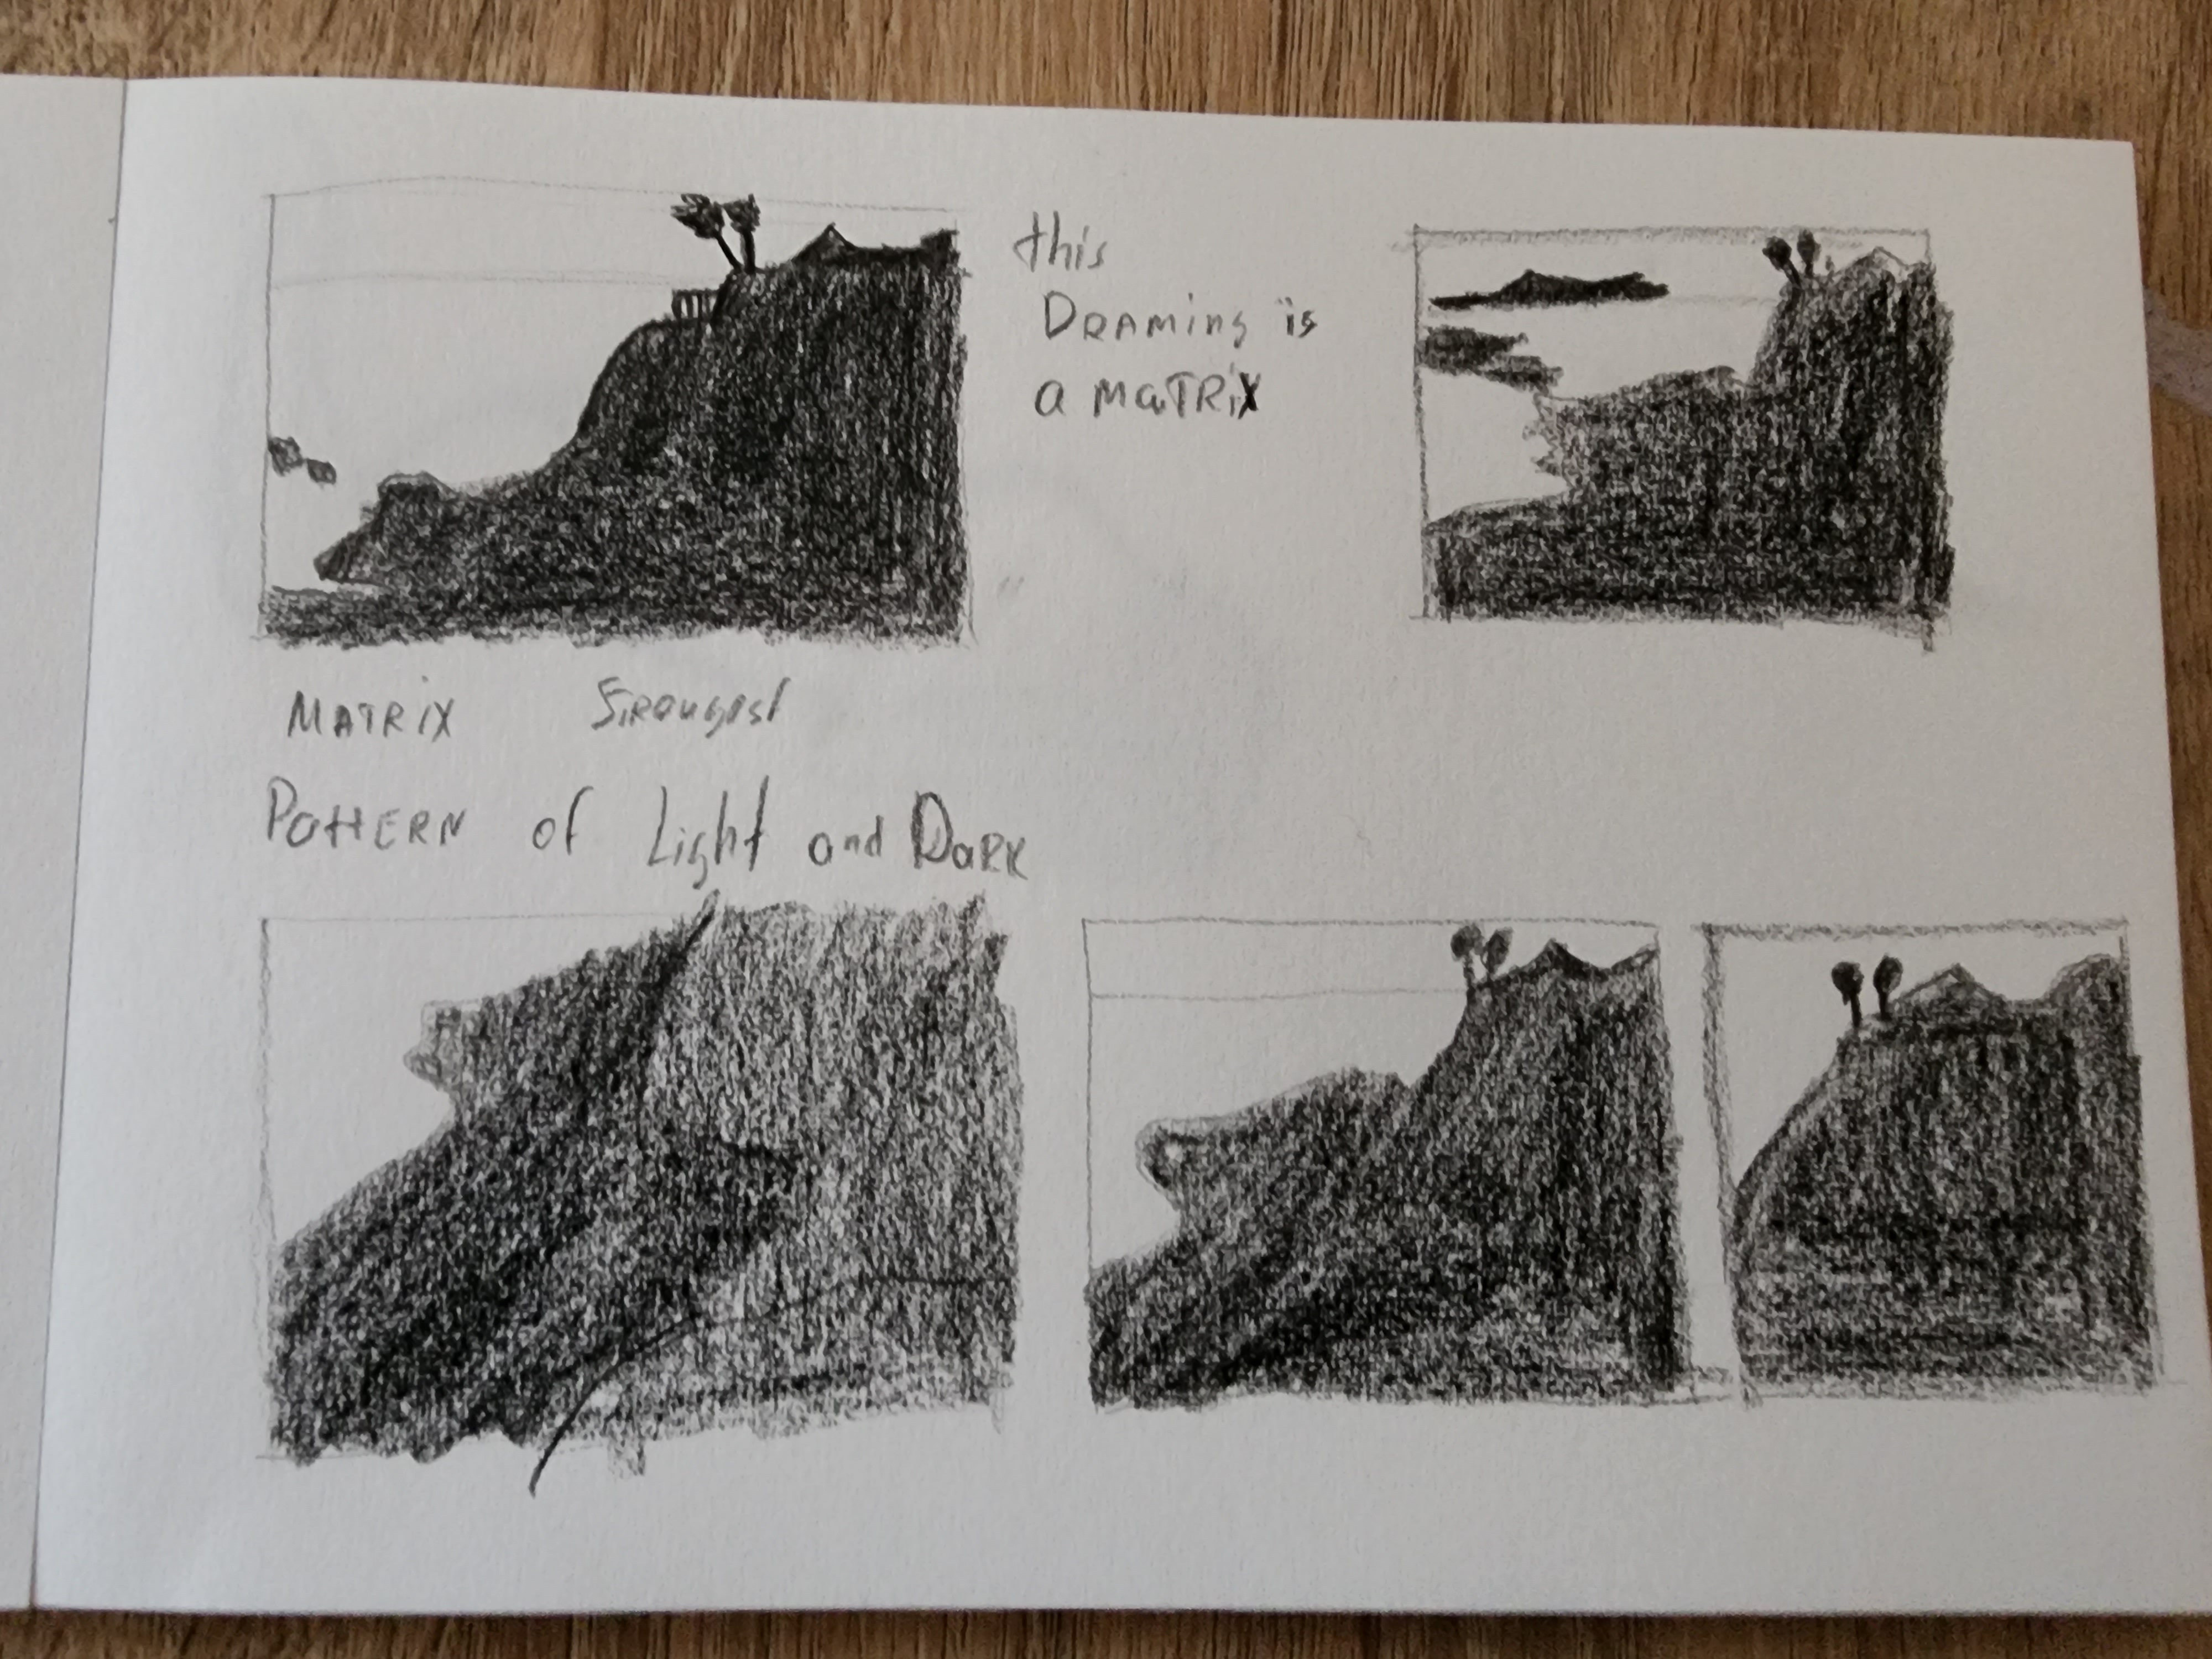 this
DRAMing is
a MaTRiX
MATRiX Strongest
PattERN of Light and DaRK